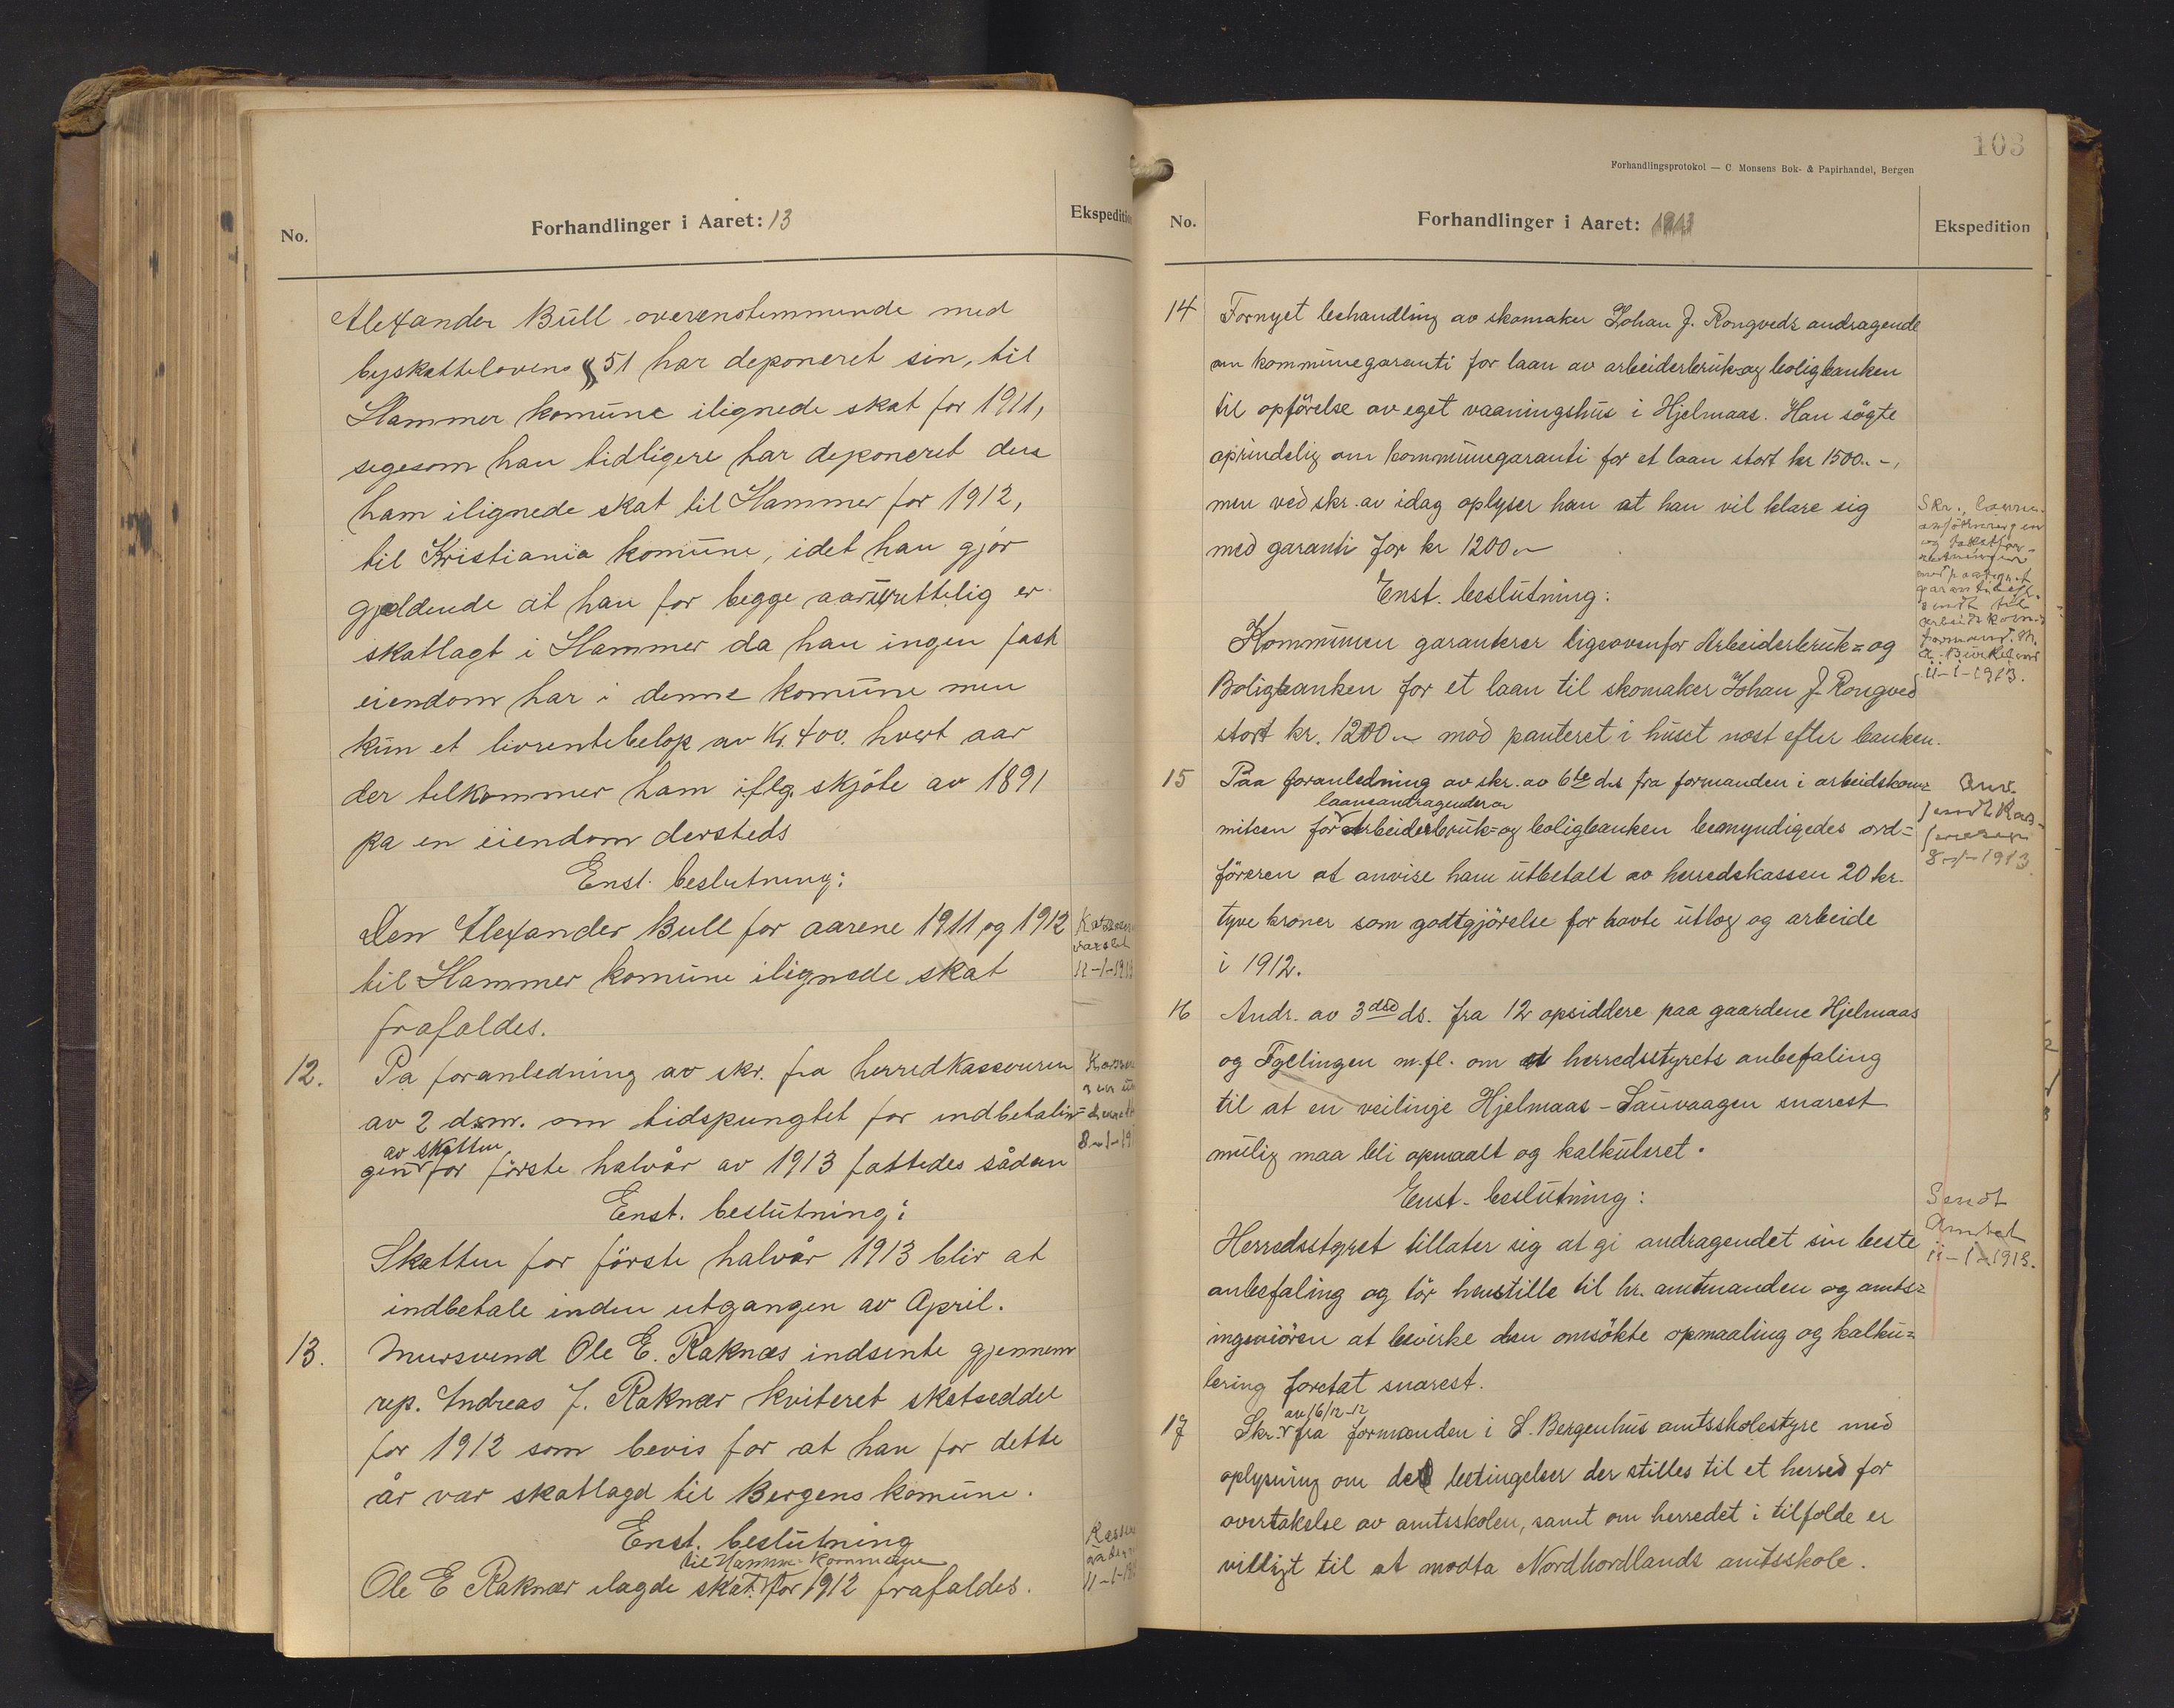 No.
Forhandlinger i Aaret: 13
Ekspedition
Alexander Bull overenstemmende med
byskattelovens § 51 har deponeret sin, til
Hammer komune ilignede skat for 1911,
segesom han tidligere har deponeret den
ham ilignede skat til Hammer for 1912,
til Kristiania komune, idet han gjør
gjeldende at han for begge aar urettelig er
skatlagt i Hammer da han ingen fast
eiendom har i denne komune men
kun et livrentebeløp av Kr. 400. hvert aar
der tilkommer ham iflg. skjöte av 1891
pa en eiendom dersteds
Enst. beslutning:
Den Alexander Bull for aarene 1911 og 1912
til Hammer komune ilignede skat
frafaldes.
Kasseser
varslet
11-1-1913
12. Pa foranledning av skr. fra herredkassereren
av 2 ds. om tidspungtet for indbetalin-
av skatten
gen for förste halvår av 1913 fattedes sådan
Enst. beslutning:
Skatten for förste halvår 1913 blir at
indbetale inden utgangen av April.
8-1-191
13. Mursvend Ole E. Raknæs indsente gjennem
rep. Andreas J. Raknær kviteret skatseddel
for 1912 som bevis for at han for dette
år var skatlagd til Bergens komune.
Enst. beslutning
til Hammer Kommune
Ole E Raknær ilagde skat for 1912 frafaldes.
11-1-191
103
Forhandlingsprotokol — C. Monsens Bok- & Papirhandel, Bergen
No.
Forhandlinger i Aaret: 1913
Ekspedition
14 Fornyet behandling av skomaker Johan J. Rongveds andragende
om kommunegaranti for laan av arbeiderbruk- og boligbanken
til opförelse av eget vaaningshus i Hjelmaas. Han sögte
oprindelig om kommunegaranti for et laan stort kr 1500.-,
men ved skr. av idag oplyser han at han vil klare sig
med garanti for kr 1200.-
Enst. beslutning:
Kommunen garanterer ligeovenfor Arbeiderbruk= og
Boligbanken for et laan til skomaker Johan J. Rongved
stort kr. 1200.- mod panteret i huset næst efter banken.
Skr., laane
ansökningen
og takstfor-
retningen
med paategnet
garantibesl.
sendt til
arbeidskom.s
formand.
11-1-1913.
15 Paa foranledning av skr. av 6te ds fra formanden i arbeidskom=
laaneandragender av
miteen for Arbeiderbruk= og boligbanken bemyndigedes ord=
föreren at anvise ham utbetalt av herredskassen 20 kr.
tyve kroner som godtgjörelse for havte utlæg og arbeide
i 1912.
Anv.
sendt Kas-
sereren
8-1-1913
16 Andr. av 3die ds. fra 12 opsiddere paa gaardene Hjelmaas
og Fyllingen m.fl. om herredsstyrets anbefaling
til at en veilinje Hjelmaas - Sauvaagen snarest
mulig maa bli opmaalt og kalkuleret.
Enst. beslutning:
Herredsstyret tillater sig at gi andragendet sin beste
anbefaling og tör henstille til hr. amtmanden og amts=
ingeniören at bevirke den omsökte opmaaling og kalku=
lering foretat snarest.
Sendt
Amtet
11-1-1913.
av 16/12-12
17 Skr. fra formanden i S. Bergenhus amtsskolestyre med
oplysning om de betingelser der stilles til et herred for
overtakelse av amtsskolen, samt om herredet i tilfælde er
villigt til at modta Nordhordlands amtsskole.